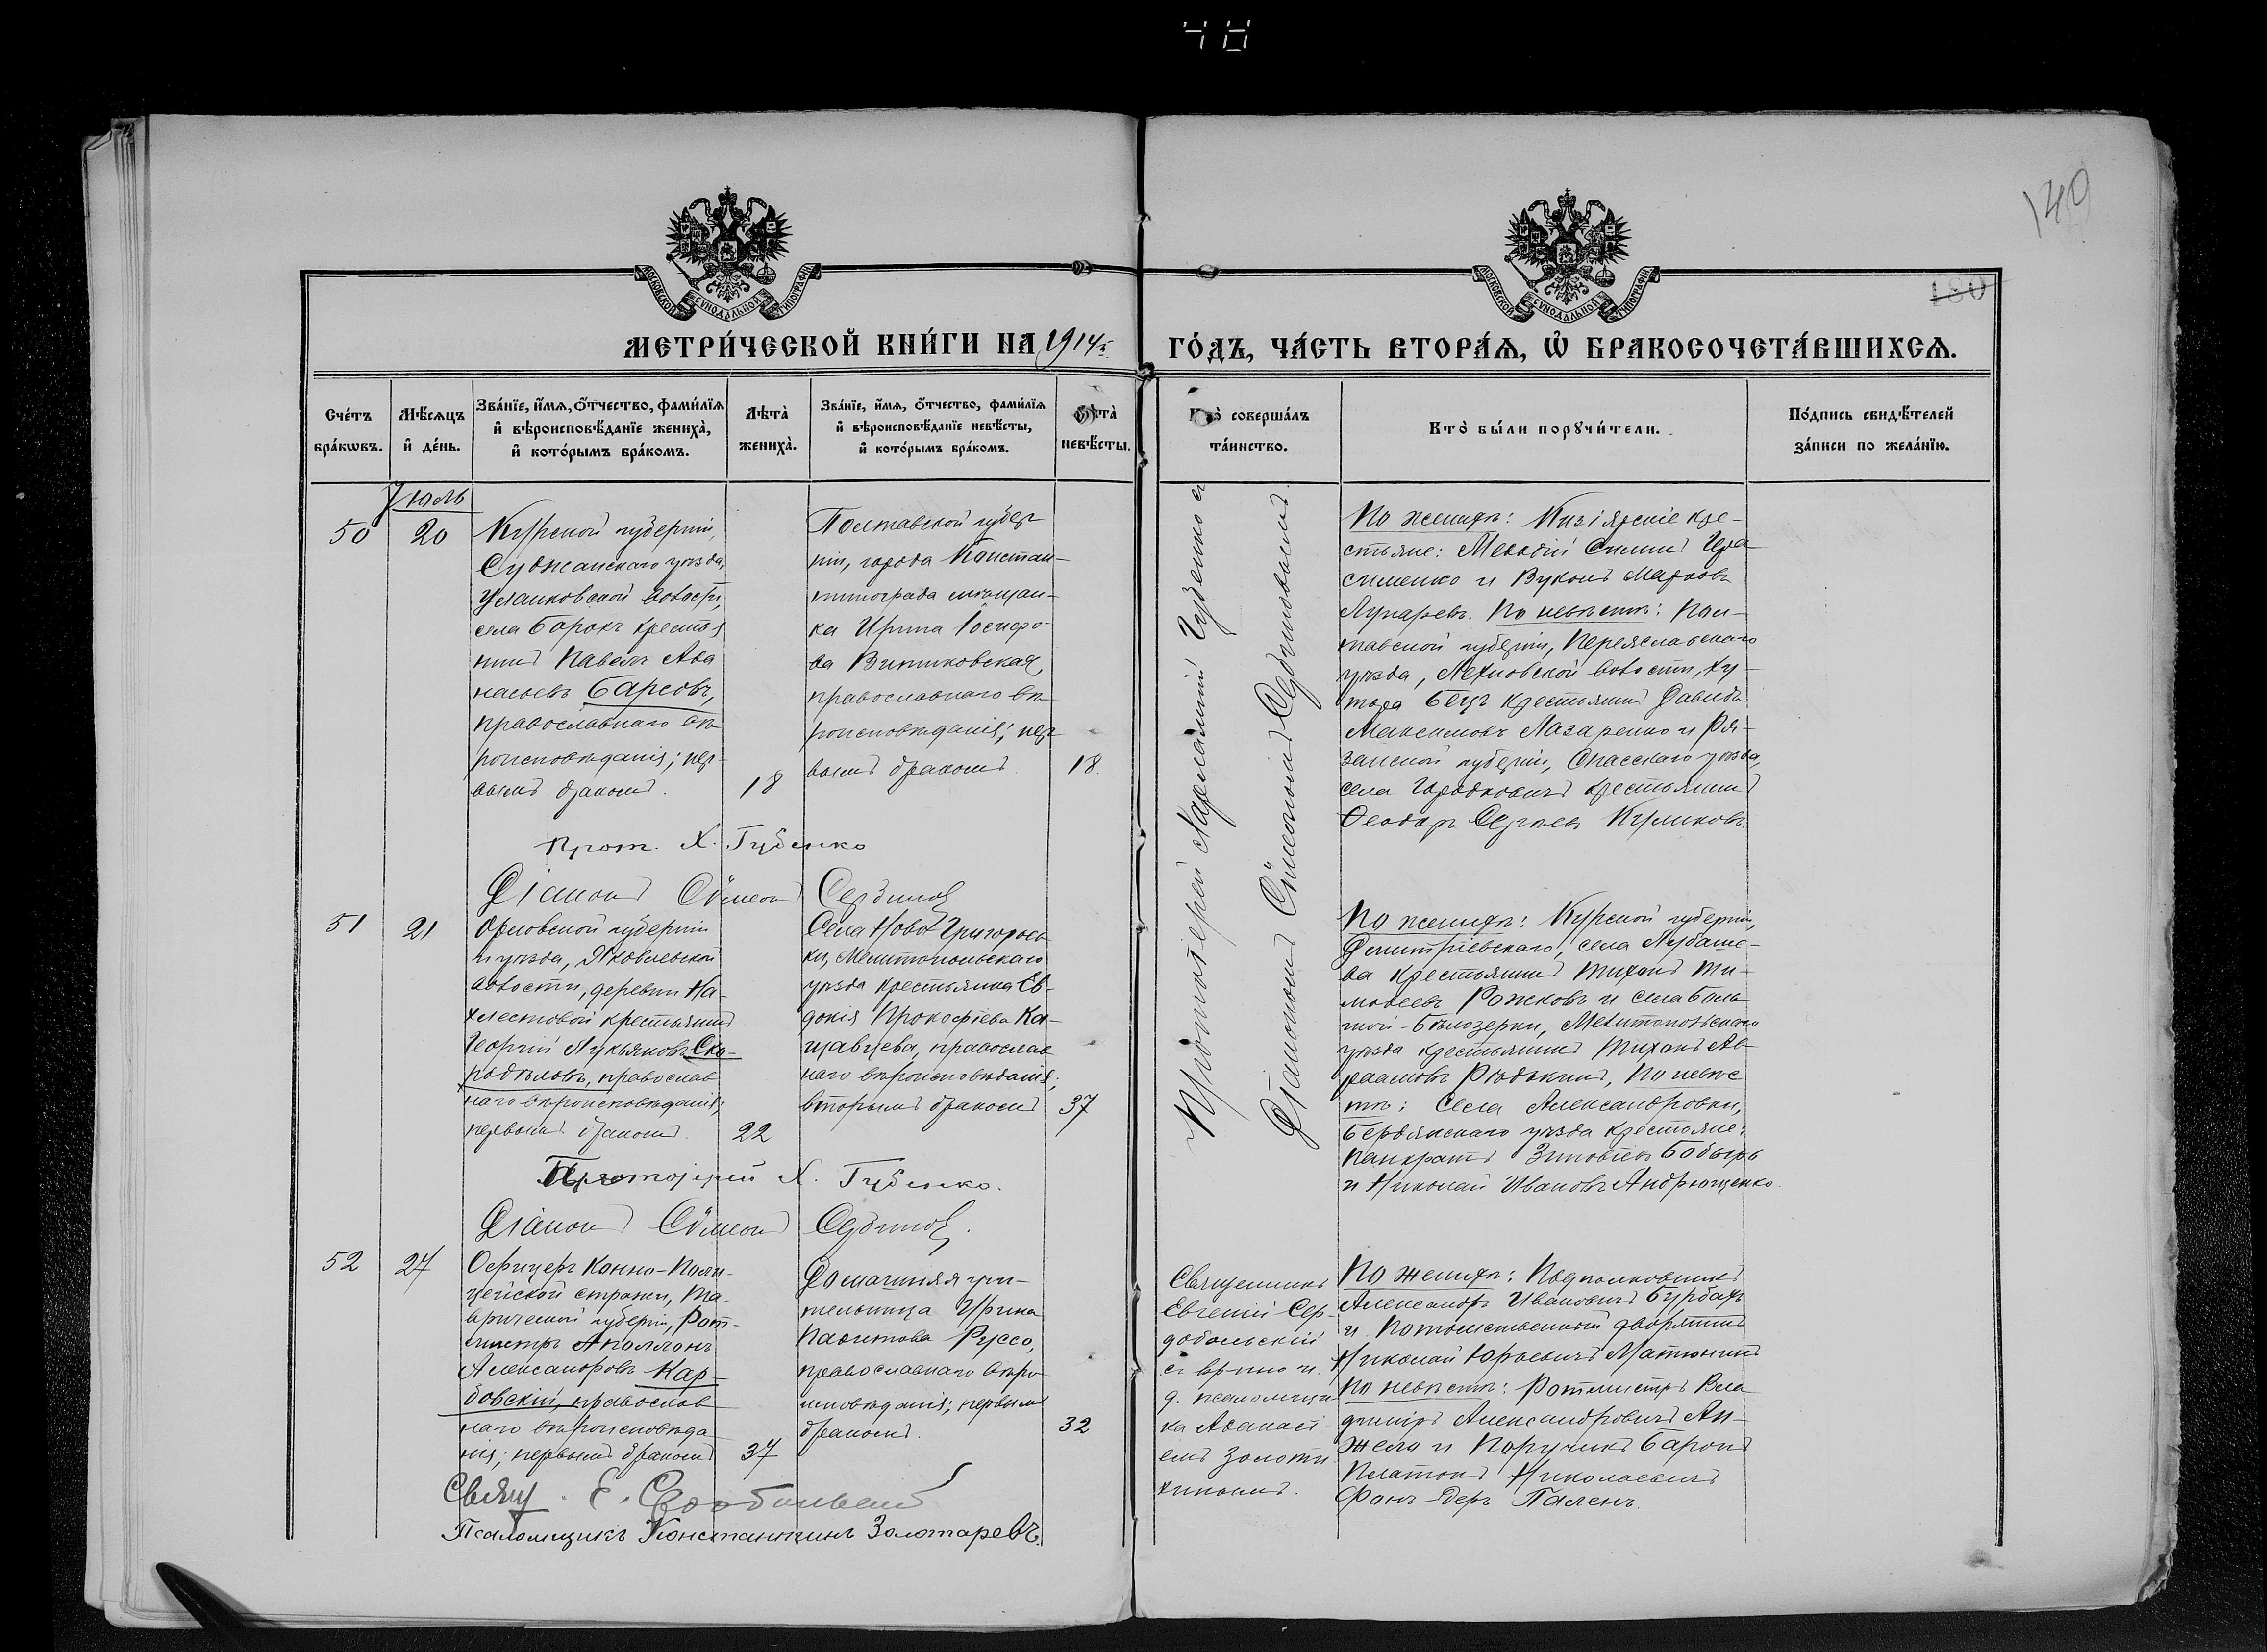 48
140
180
МОСКОВСКОЙ СѴНОДАЛЬНОЙ ТИПОГРАФІИ
МОСКОВСКОЙ СѴНОДАЛЬНОЙ ТИПОГРАФІИ
МЕТРИ́ЧЕСКОЙ КНИ́ГИ НА 1914й
ГО́ДЪ, ЧА́СТЬ ВТОРА́Я, Ѡ҆ БРАКОСОЧЕТА́ВШИХСЯ.
Сче́тъ бра́кѡвъ.
Мѣ́сяцъ и҆ де́нь.
Зва́нїе, и҆́мя, ѻ҆́тчество, фами́лїя
и҆ вѣроисповѣ́данїе жениха̀,
и҆ кото́рымъ бра́комъ.
Лѣта̀ жениха̀.
Зва́нїе, и҆́мя, ѻ҆́тчество, фами́лїя
и҆ вѣроисповѣ́данїе невѣ́сты,
и҆ кото́рымъ бра́комъ.
Лѣта̀ невѣ́сты.
Кто̀ соверша́лъ та́инство.
Кто̀ бы́ли порꙋчи́тели.
По́дпись свидѣ́телей
за́писи по жела́нїю.
Іюль
50
20
Курской губерніи,
Суджанскаго уѣзда,
Уланковской волости,
села Борокъ крестья
нинъ Павелъ Аѳа
насьевъ Барсовъ,
православнаго вѣ
роисповѣданія; пер-
вымъ бракомъ.
18
Полтавской губер
ніи, города Констан-
тинограда мѣщан-
ка Ирина Іосифо-
ва Витиковская,
православнаго вѣ
роисповѣданія; пер
вымъ бракомъ.
18.
Протоіерей Харлампій Губенко съ
Діакономъ Сѵмеономъ Сербиновымъ.
По женихѣ: Кизіярскіе кре-
стьяне: Меѳодій Симин Гера
сименко и Вуколъ Марковъ
Лугаревъ. По невѣстѣ: Пол-
тавской губерніи, Переяславскаго
уѣзда, Лехновской волости, ху-
тора Бецъ крестьянинъ Давидъ
Максимовъ Лазаренко и Ря-
занской губерніи, Спасскаго уѣзда,
села Городковичъ крестьянинъ
Ѳеодоръ Сергѣевъ Куликовъ.
Прот. Х. Губенко
Діаконъ Сѵмеонъ Сербиновъ
51
21
Орловской губерніи
и уѣзда, Яковлевской
волости, деревни На-
хлестовой крестьянинъ
Георгій Лукьяновъ Ско-
родѣловъ, православ
наго вѣроисповѣданія;
первымъ бракомъ.
22
Села Ново Григорьев
ки, Мелитопольскаго
уѣзда крестьянка Ев-
докія Прокофіева Ка-
щавцева, православ
наго вѣроисповѣданія;
вторымъ бракомъ
37
По женихѣ: Курской губерніи,
Дмитріевскаго, села Лубаше-
ва крестьянинъ Тихонъ Ти-
моѳеевъ Рожковъ и села Боль-
шой-Бѣлозерки, Мелитопольскаго
уѣзда крестьянинъ Тихонъ Ав-
раамовъ Рѣдькинъ, По невѣс
тѣ: Села Александровки,
Бердянскаго уѣзда крестьяне:
Панкратъ Зиновіевъ Бобырь
и Николай Ивановъ Андрющенко.
Протоіерей Х. Губенко.
Діаконъ Сѵмеонъ Сербиновъ.
52
27
Офицеръ Конно-Поли-
цейской стражи, Та-
врической губерніи, Рот-
мистръ Аполлонъ
Александровъ Кар-
бовскій, православ
наго вѣроисповѣда
нія; первымъ бракомъ
37
Домашняя учи-
тельница Ирина
Павлитова Руссо,
православнаго вѣро
исповѣданія; первымъ
бракомъ.
32
Священникъ
Евгеній Сер-
добольскій
съ вр-но и.
д. псаломщи-
ка Аѳанасі-
емъ Золоти
хинымъ.
По женихѣ: Подполковникъ
Александръ Ивановичъ Бурбахъ
и Потомственный дворянинъ
Николай Юрьевичъ Матюнинъ
По невѣстѣ: Ротмистръ Вла-
диміръ Александровичъ Ан-
жело и Поручикъ Баронъ
Платонъ Николаевичъ
Фонъ-деръ Паленъ.
Свящ. Е. Сердобольскій
Псаломщикъ Константинъ Золотаревъ.